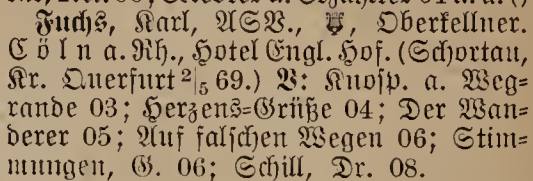 Fuchs, Karl, ASV., Oberkellner.
Cöln a. Rh., Hotel Engl. Hof. (Schortau,
Kr. Querfurt 2/5 69.) V: Knosp. a. Weg-
rande 03; Herzens-Grüße 04; Der Wan-
derer 05; Auf falschen Wegen 06; Stim-
mungen, G. 06; Schill, Dr. 08.